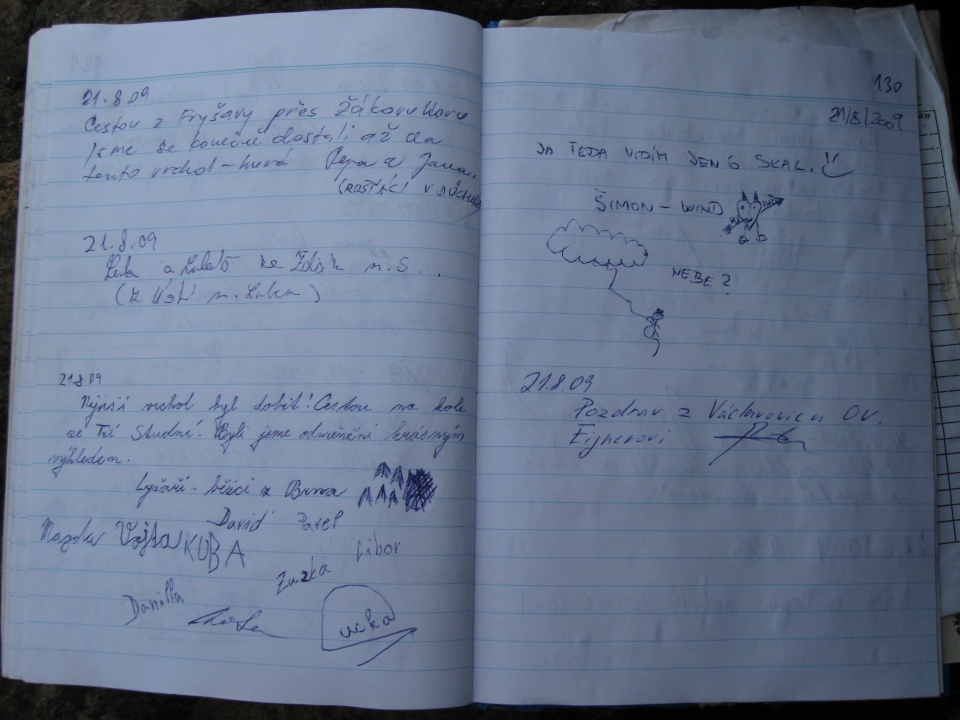 21.8.09
Cestou z Fryšavy přes Žákovu horu
jsme se konečně dostali až na
tento vrchol - hurá Pepa a Jana.
(ROŠŤÁCI V DŮCHODU
21.8.09
a ze Žďáru n. S...
(z Ústí n. Labem)
21.8.09
Nejvyšší vrchol byl dobit! Cestou na kole
ze Tří Studní. Byli jsme odměněni krásným
výhledem.
Lyžaři - běžci z Brna
David Pavel
Magda Vojta KUBA Libor
Zuzka
Danilla
130
21/8/2009
JA TEDA VIDÍM JEN 6 SKAL.
ŠIMON - WIND
NEBE?
21.8.09
Pozdrav z Václavovic u OV.
Fijnerovi